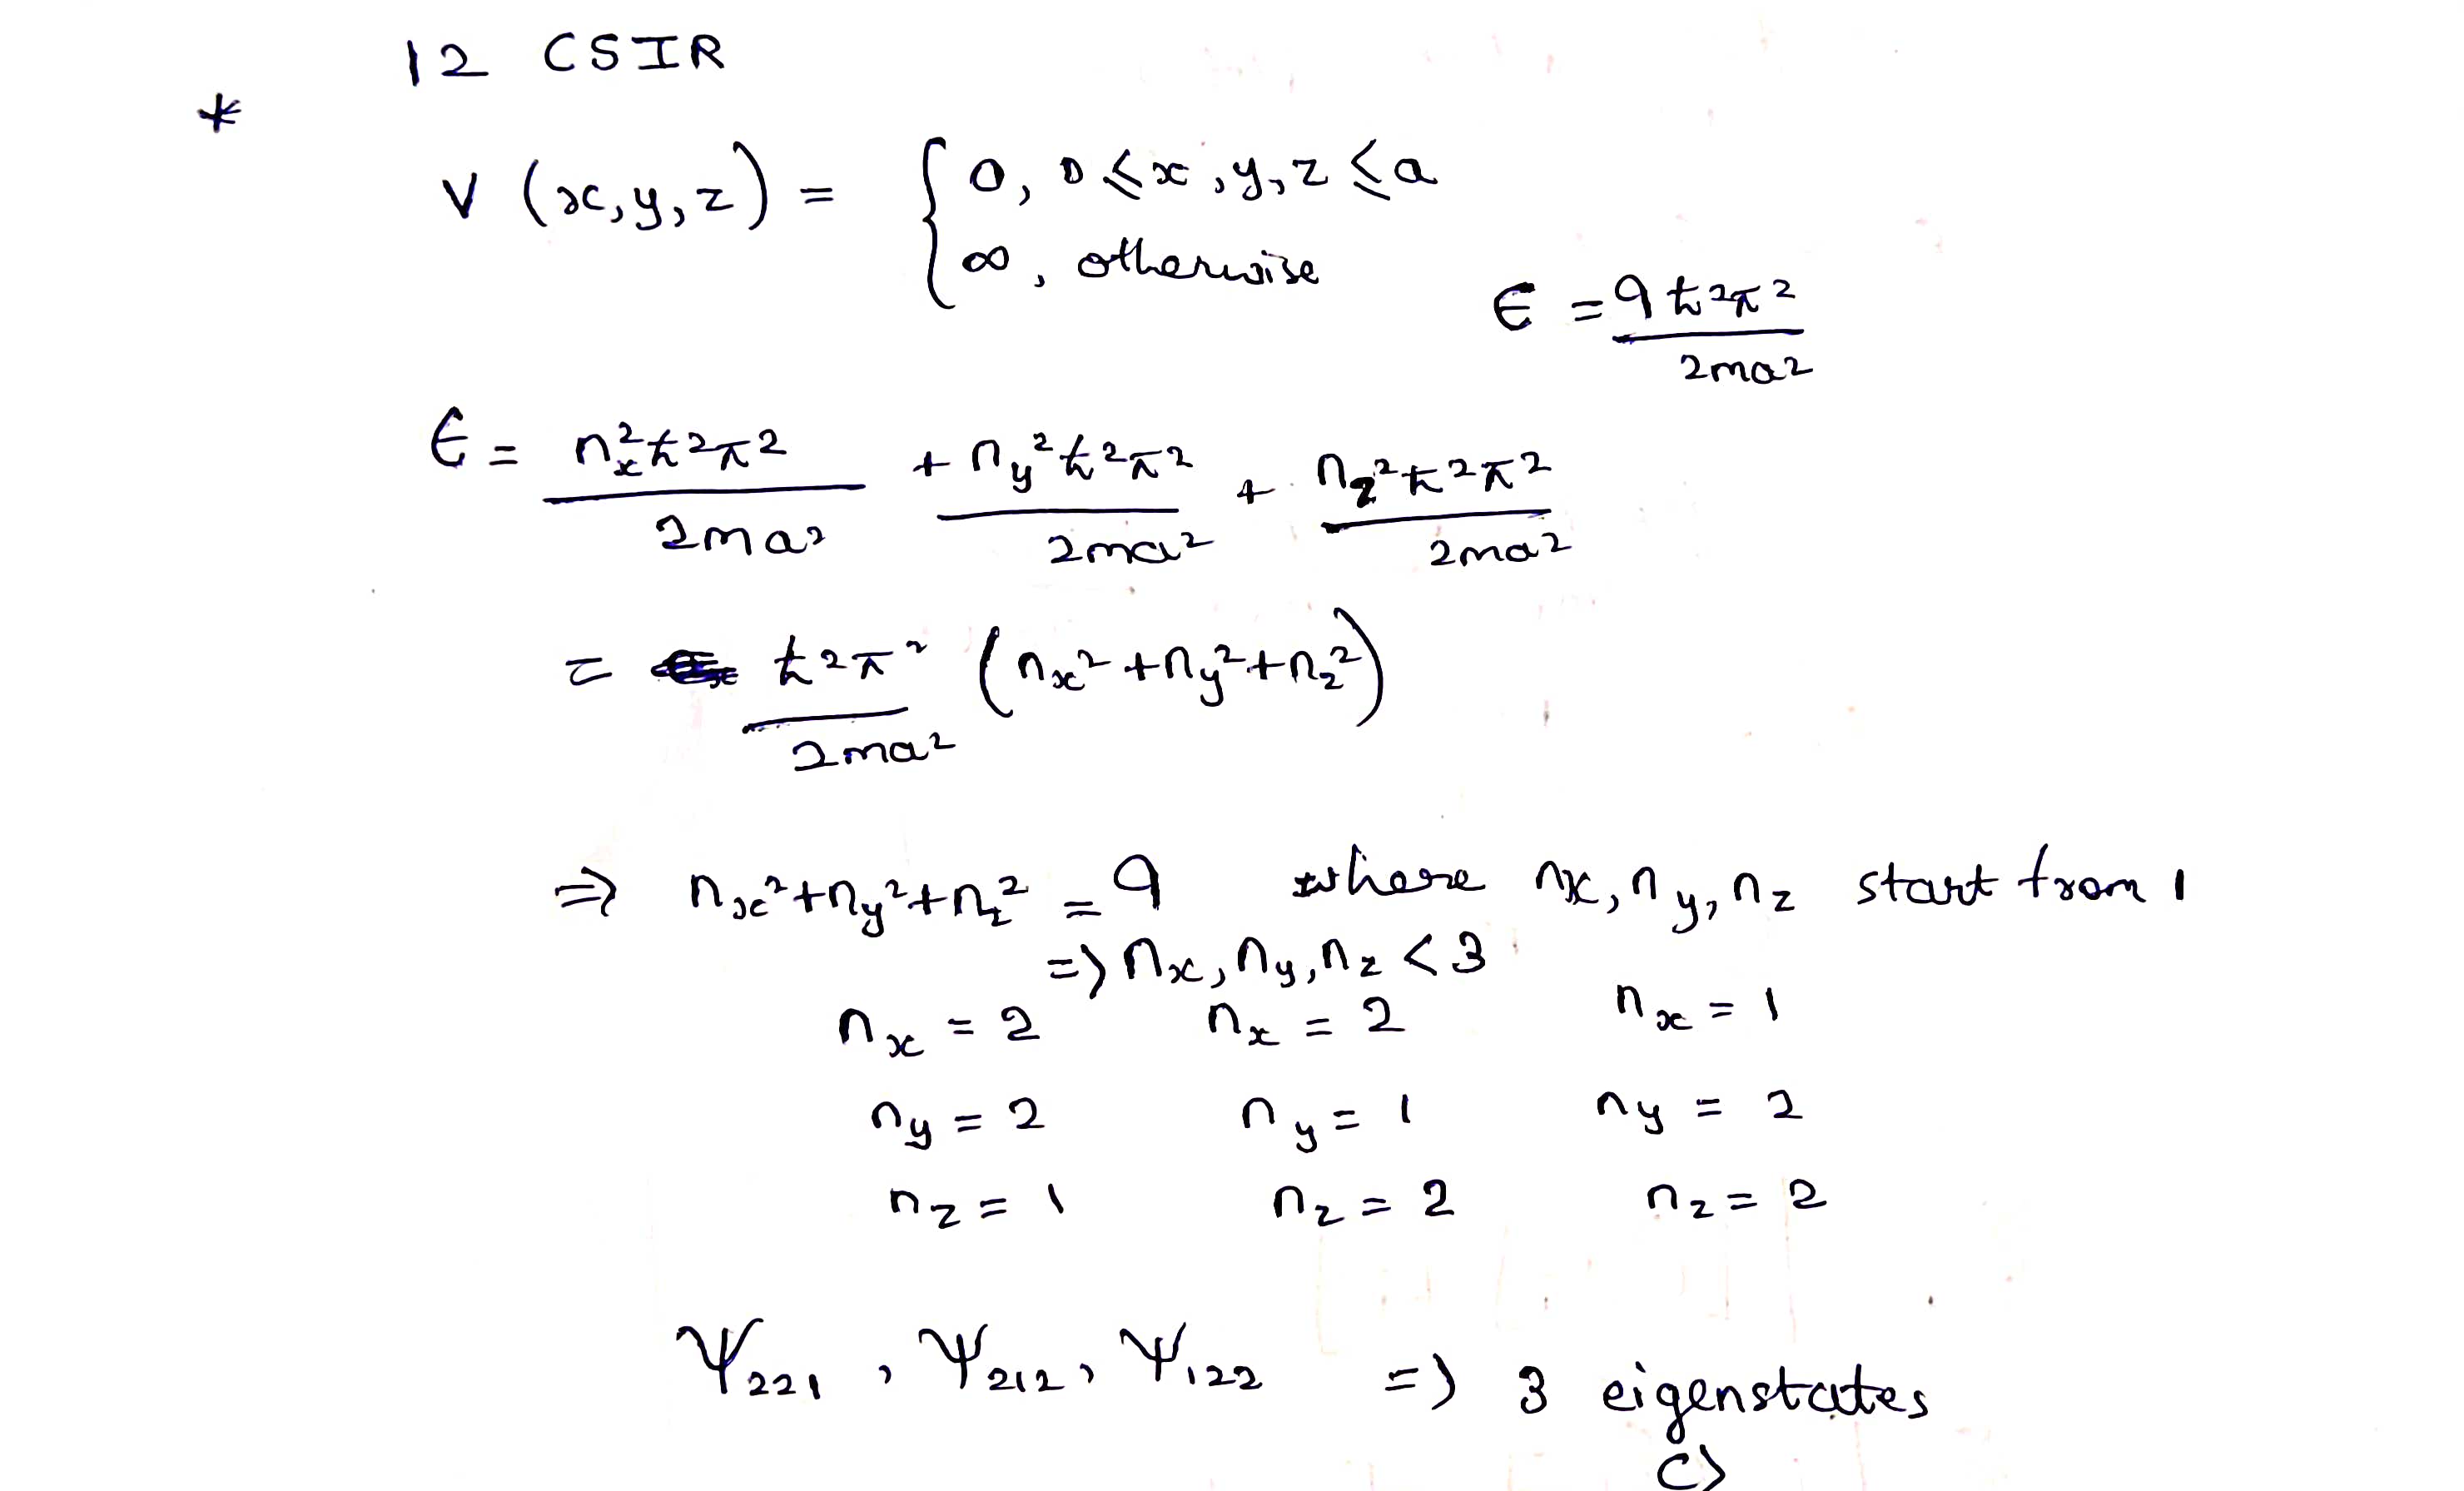 12 CSIR
*
V (x,y,z) = { 0, 0 ≤ x, y, z ≤ a
∞, otherwise
E = 9ħ²π² / 2ma²
E = nₓ²ħ²π² / 2ma² + n_y²ħ²π² / 2ma² + n_z²ħ²π² / 2ma²
= ħ²π² / 2ma² (nₓ² + n_y² + n_z²)
⇒ nₓ² + n_y² + n_z² = 9 where nx, ny, nz start from 1
⇒ nx, ny, nz < 3
nx = 2 nx = 2 nx = 1
ny = 2 ny = 1 ny = 2
nz = 1 nz = 2 nz = 2
Ψ₂₂₁, Ψ₂₁₂, Ψ₁₂₂ ⇒ 3 eigenstates
c)